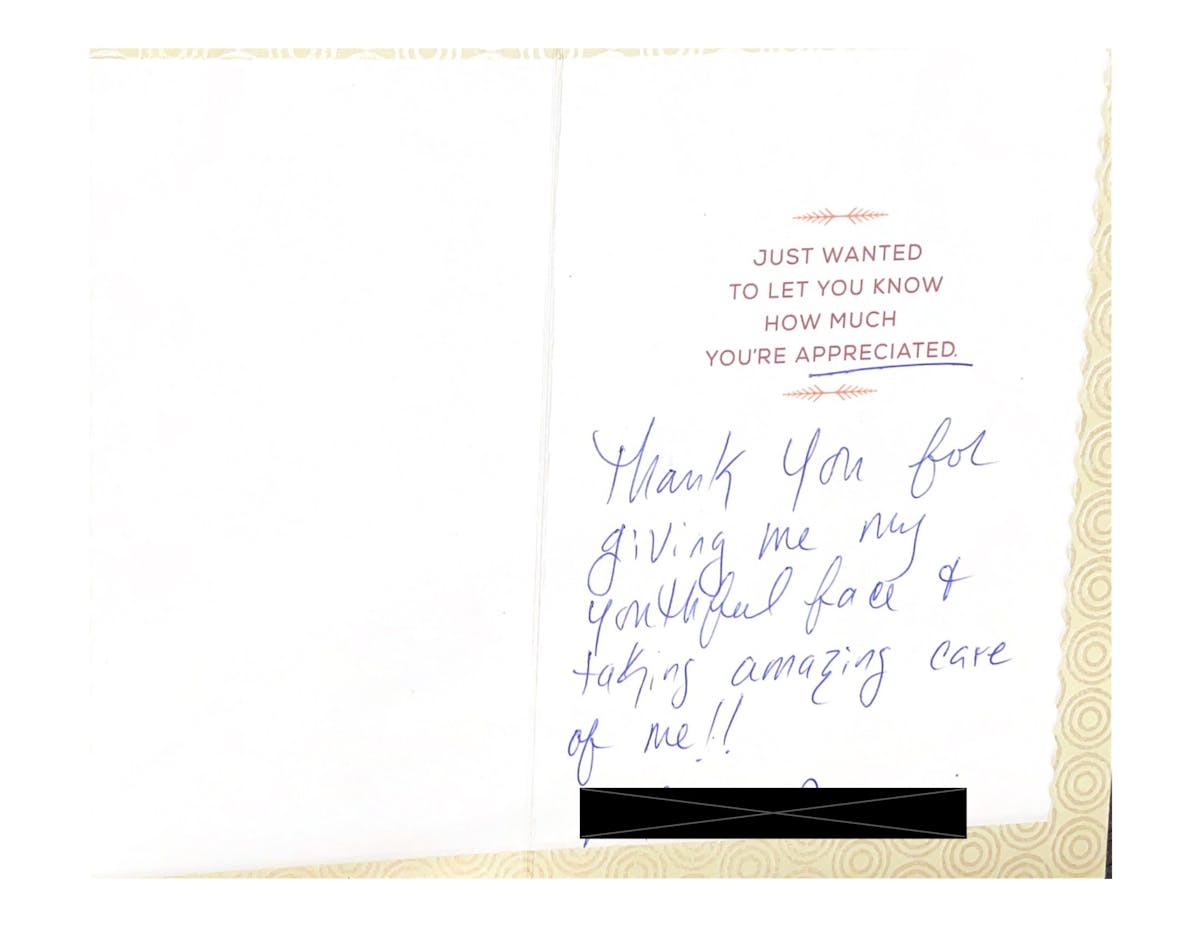 JUST WANTED
TO LET YOU KNOW
HOW MUCH
YOU'RE APPRECIATED.
Thank you for
giving me my
youthful face &
taking amazing care
of me!!